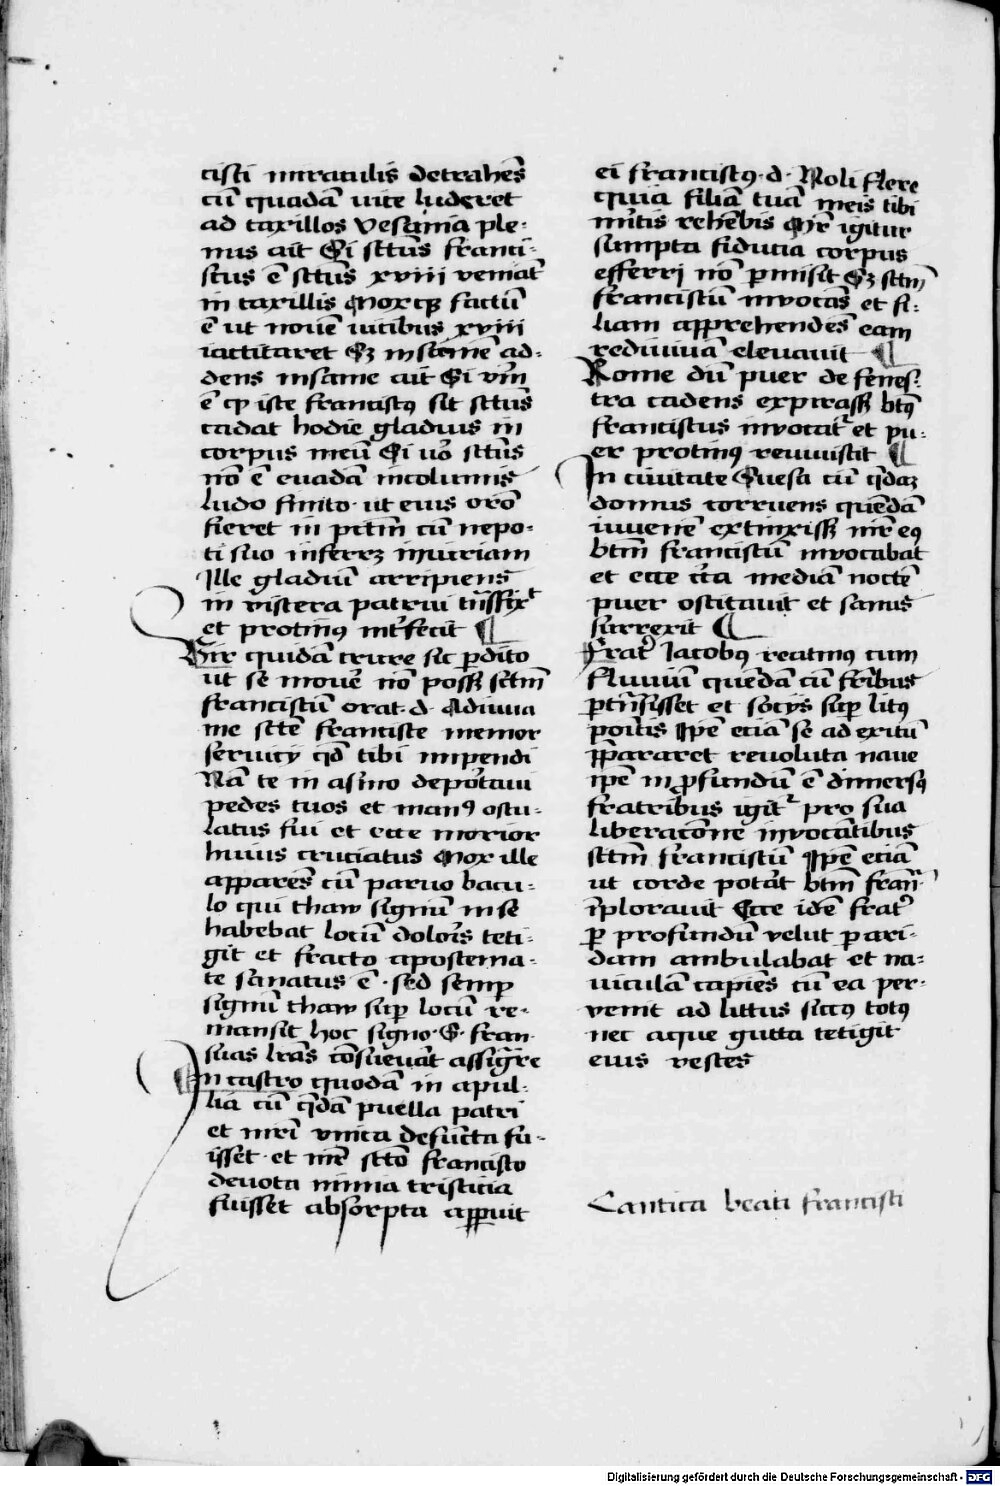 cisci miraculis detrahēs
cū quadā vice luderet
ad taxillos vesania ple-
nus ait Si sctūs franci-
scus ē sctūs xviii veniāt
in taxillis Mox qȝ factū
ē ut novē vicibus xviii
iactitaret Sȝ insaniē ad-
dens insanie ait Si vm̄
ē ꝙ iste franciscꝰ sit sctūs
cadat hodie gladius in
corpus meū Si vō sctūs
nō ē evadā incolumis
Ludo finito ut eius orō
fieret in pctm̄ cū nepo-
ti suo inferrȝ iniuriam
Ille gladiū arripiens
in viscera patrui tn̄sfixt
et protinꝰ int̄fecit ¶
Vir quidā crure sic ꝑdito
ut se movē nō possȝ sctm̄
franciscū orat · d · Adiuva
me sctē francisce memor
servicij qd̄ tibi impendi
Nā te in asino deportavi
pedes tuos et manꝰ oscu-
latus fui et ecce morior
huius cruciatus Mox ille
apparēs cū parvo bacu-
lo qui thaw signū in se
habebat locū dolor̄s teti-
git et fracto apostema-
te sanatus ē · sed semꝑ
signū thaw suꝑ locū re-
mansit hoc signo · S · fran
suas lrās cōsuevāt assign̄re
In castro quodā in apul-
lia cū qd̄ā puella patri
et mr̄i unica defuncta fu-
isset · et mr̄ sctō francisco
devota nimia tristicia
fuisset absorpta apꝑuit
ei franciscꝰ · d · Noli flere
quia filiā tuā meis tibi
mr̄itis rehēbis Mr̄ igitur
sumpta fiducia corpus
efferri nō ꝑmisit Sȝ sctm̄
franciscū invocās et fi-
liam apprehendēs eam
redivivā elevavit ¶
Rome dū puer de fenes-
tra cadens expirassȝ btꝰ
franciscus invocatᷣ et pu-
er protinꝰ reviviscit ¶
In civitate Suesa cū qd̄aȝ
domus corruens quēdā
iuvenē extinxissȝ mr̄ eꝰ
btm̄ franciscū invocabat
et ecce cᷣca mediā noctē
puer oscitavit et sanus
surrexit ¶
Frat̄ Iacobꝰ reatinꝰ cum
fluviū quēdā cū fr̄ibus
ꝑtn̄sisset et socijs suꝑ litꝰ
poītis Ip̄e eciā se ad exitū
p̄pararet revoluta nave
ip̄e in ꝓfundū ē dimersꝰ
fratribus igitᷣ pro sua
liberacōne invocātibus
sctm̄ franciscū Ip̄e eciā
ut corde potāt btm̄ fran̄
īploravit Ecce idē frat̄
ꝑ profundū velut ꝑ ari-
dam ambulabat et na-
viculā capiēs cū ea per-
venit ad littus siccꝰ totꝰ
nec aque gutta tetigit
eius vestes
Cantica beati francisci
Digitalisierung gefördert durch die Deutsche Forschungsgemeinschaft - DFG